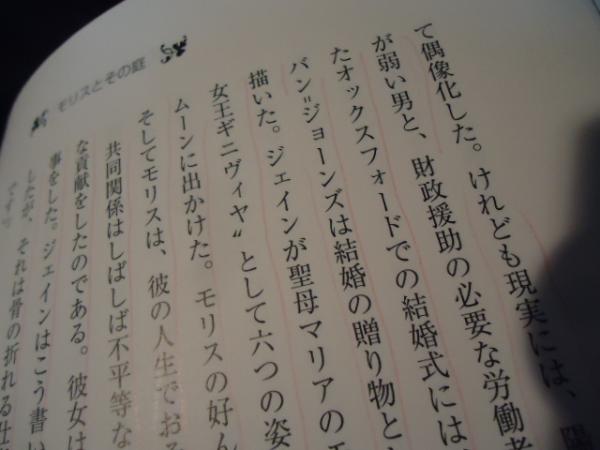 モリスとその庭
て偶像化した。けれども現実には、陽
が弱い男と、財政援助の必要な労働者
たオックスフォードでの結婚式には
バン=ジョーンズは結婚の贈り物と
描いた。ジェインが聖母マリアの
女王ギニヴィヤ〟として六つの姿
ムーンに出かけた。モリスの好ん
そしてモリスは、彼の人生でお
共同関係はしばしば不平等な
な貢献をしたのである。彼女は
事をした。ジェインはこう書い
したが、それは骨の折れる仕
です」